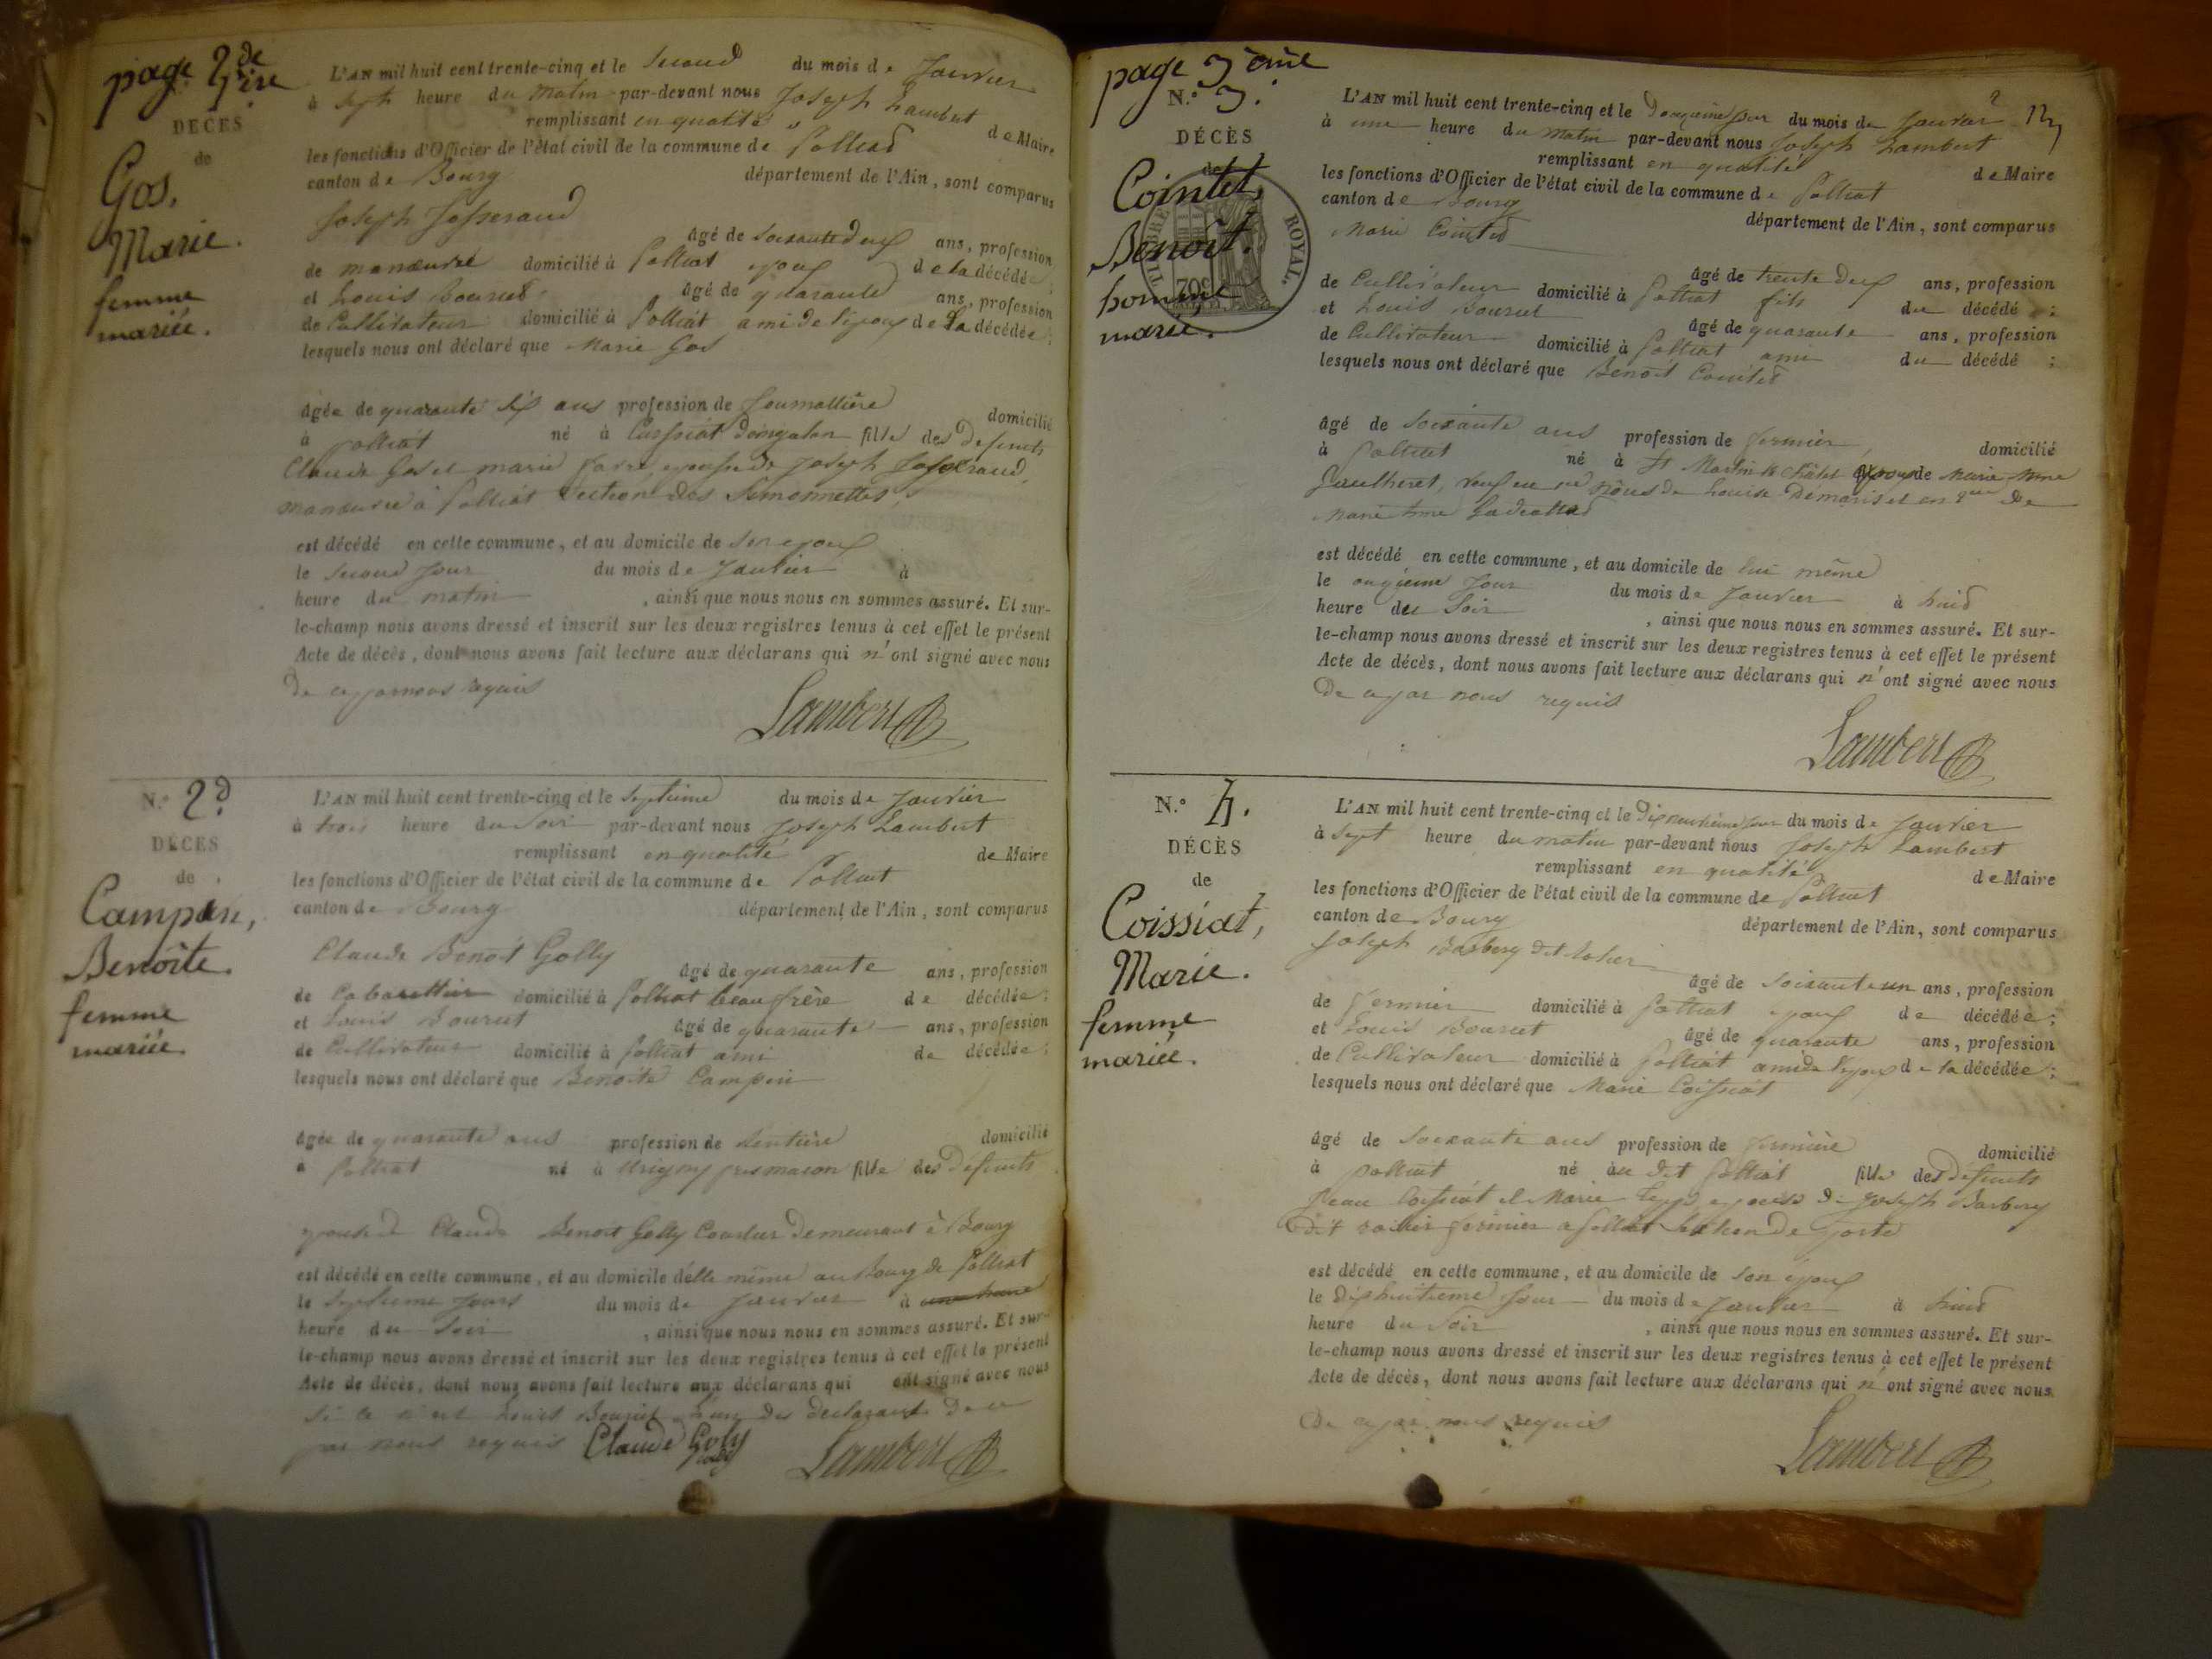 page 2de
1ère
DÉCÈS
de
Gos,
Marie.
femme
mariée.
L'AN mil huit cent trente-cinq et le second du mois de Janvier
à sept heure du matin par-devant nous Joseph Lambert
remplissant en qualité de Maire
les fonctions d'Officier de l'état civil de la commune de Polliat
canton de Bourg département de l'Ain, sont comparus
Joseph Josserand
âgé de soixante deux ans, profession
de manœuvre domicilié à Polliat époux de la décédée;
et Louis Bourcet âgé de quarante ans, profession
de Cultivateur domicilié à Polliat ami de l'époux de la décédée;
lesquels nous ont déclaré que Marie Gos
âgée de quarante six ans profession de domicilié
à Polliat né à fille des defunts
Claude Gos et marie épouse de Joseph Josserand,
manœuvre à Polliat section des Simonnettes,
est décédé en cette commune, et au domicile de son époux
le second jour du mois de Janvier à
heure du matin, ainsi que nous nous en sommes assuré. Et sur-
le-champ nous avons dressé et inscrit sur les deux registres tenus à cet effet le présent
Acte de décès, dont nous avons fait lecture aux déclarans qui n'ont signé avec nous
de ce par nous requis
Lambert
N.° 2d
DÉCÈS
de
Campin,
Benoîte.
femme
mariée.
L'AN mil huit cent trente-cinq et le septième du mois de Janvier
à trois heure du soir par-devant nous Joseph Lambert
remplissant en qualité de Maire
les fonctions d'Officier de l'état civil de la commune de Polliat
canton de Bourg département de l'Ain, sont comparus
Claude Benoit Golly
âgé de quarante ans, profession
de Cabarettier domicilié à Polliat beau frère de décédée;
et Louis Bourcet âgé de quarante ans, profession
de Cultivateur domicilié à Polliat ami de décédée;
lesquels nous ont déclaré que Benoite Campin
âgée de quarante ans profession de Rentière domicilié
à Polliat né à près macon fille des defunts
épouse de Claude Benoit Golly demeurant à Bourg
est décédé en cette commune, et au domicile d'elle même au Bourg de Polliat
le septieme jours du mois de Janvier à une heure
heure du Soir, ainsi que nous nous en sommes assuré. Et sur-
le-champ nous avons dressé et inscrit sur les deux registres tenus à cet effet le présent
Acte de décès, dont nous avons fait lecture aux déclarans qui ont signé avec nous
si ce n'est Louis Bourcet l'un des declarants de ce
par nous requis Claude Goly Lambert
page 3ème
N.° 3.
DÉCÈS
de
Cointet,
Benoît.
homme
marié.
TIMBRE ROYAL.
70c
L'AN mil huit cent trente-cinq et le Douzieme jour du mois de Janvier
à une heure du matin par-devant nous Joseph Lambert
remplissant en qualité de Maire
les fonctions d'Officier de l'état civil de la commune de Polliat
canton de Bourg département de l'Ain, sont comparus
Marie Cointet
âgé de trente deux ans, profession
de Cultivateur domicilié à Polliat fils du décédé;
et Louis Bourcet âgé de quarante ans, profession
de Cultivateur domicilié à Polliat ami du décédé;
lesquels nous ont déclaré que Benoit Cointet
âgé de soixante ans profession de fermier domicilié
à Polliat né à St Martin le Châtel époux de Marie Anne
Gautheret, veuf en de Louise et en de
Marie Anne
est décédé en cette commune, et au domicile de lui même
le onzieme Jour du mois de Janvier à huit
heure du Soir, ainsi que nous nous en sommes assuré. Et sur-
le-champ nous avons dressé et inscrit sur les deux registres tenus à cet effet le présent
Acte de décès, dont nous avons fait lecture aux déclarans qui n'ont signé avec nous
De ce par nous requis
Lambert
N.° 4.
DÉCÈS
de
Coissiat,
Marie.
femme
mariée.
L'AN mil huit cent trente-cinq et le Dix neuvieme jour du mois de Janvier
à sept heure du matin par-devant nous Joseph Lambert
remplissant en qualité de Maire
les fonctions d'Officier de l'état civil de la commune de Polliat
canton de Bourg département de l'Ain, sont comparus
Joseph Barbery dit
âgé de soixante un ans, profession
de fermier domicilié à Polliat époux de décédée;
et Louis Bourcet âgé de quarante ans, profession
de Cultivateur domicilié à Polliat ami de l'époux de la décédée;
lesquels nous ont déclaré que Marie Coissiat
âgé de soixante ans profession de fermière domicilié
à Polliat né au dit Polliat fille des defunts
Jean Coissiat et Marie épouse de Joseph Barbery
dit fermier à Polliat section de
est décédé en cette commune, et au domicile de son époux
le dix huitieme jour du mois de Janvier à huit
heure du Soir, ainsi que nous nous en sommes assuré. Et sur-
le-champ nous avons dressé et inscrit sur les deux registres tenus à cet effet le présent
Acte de décès, dont nous avons fait lecture aux déclarans qui n'ont signé avec nous
De ce par nous requis
Lambert